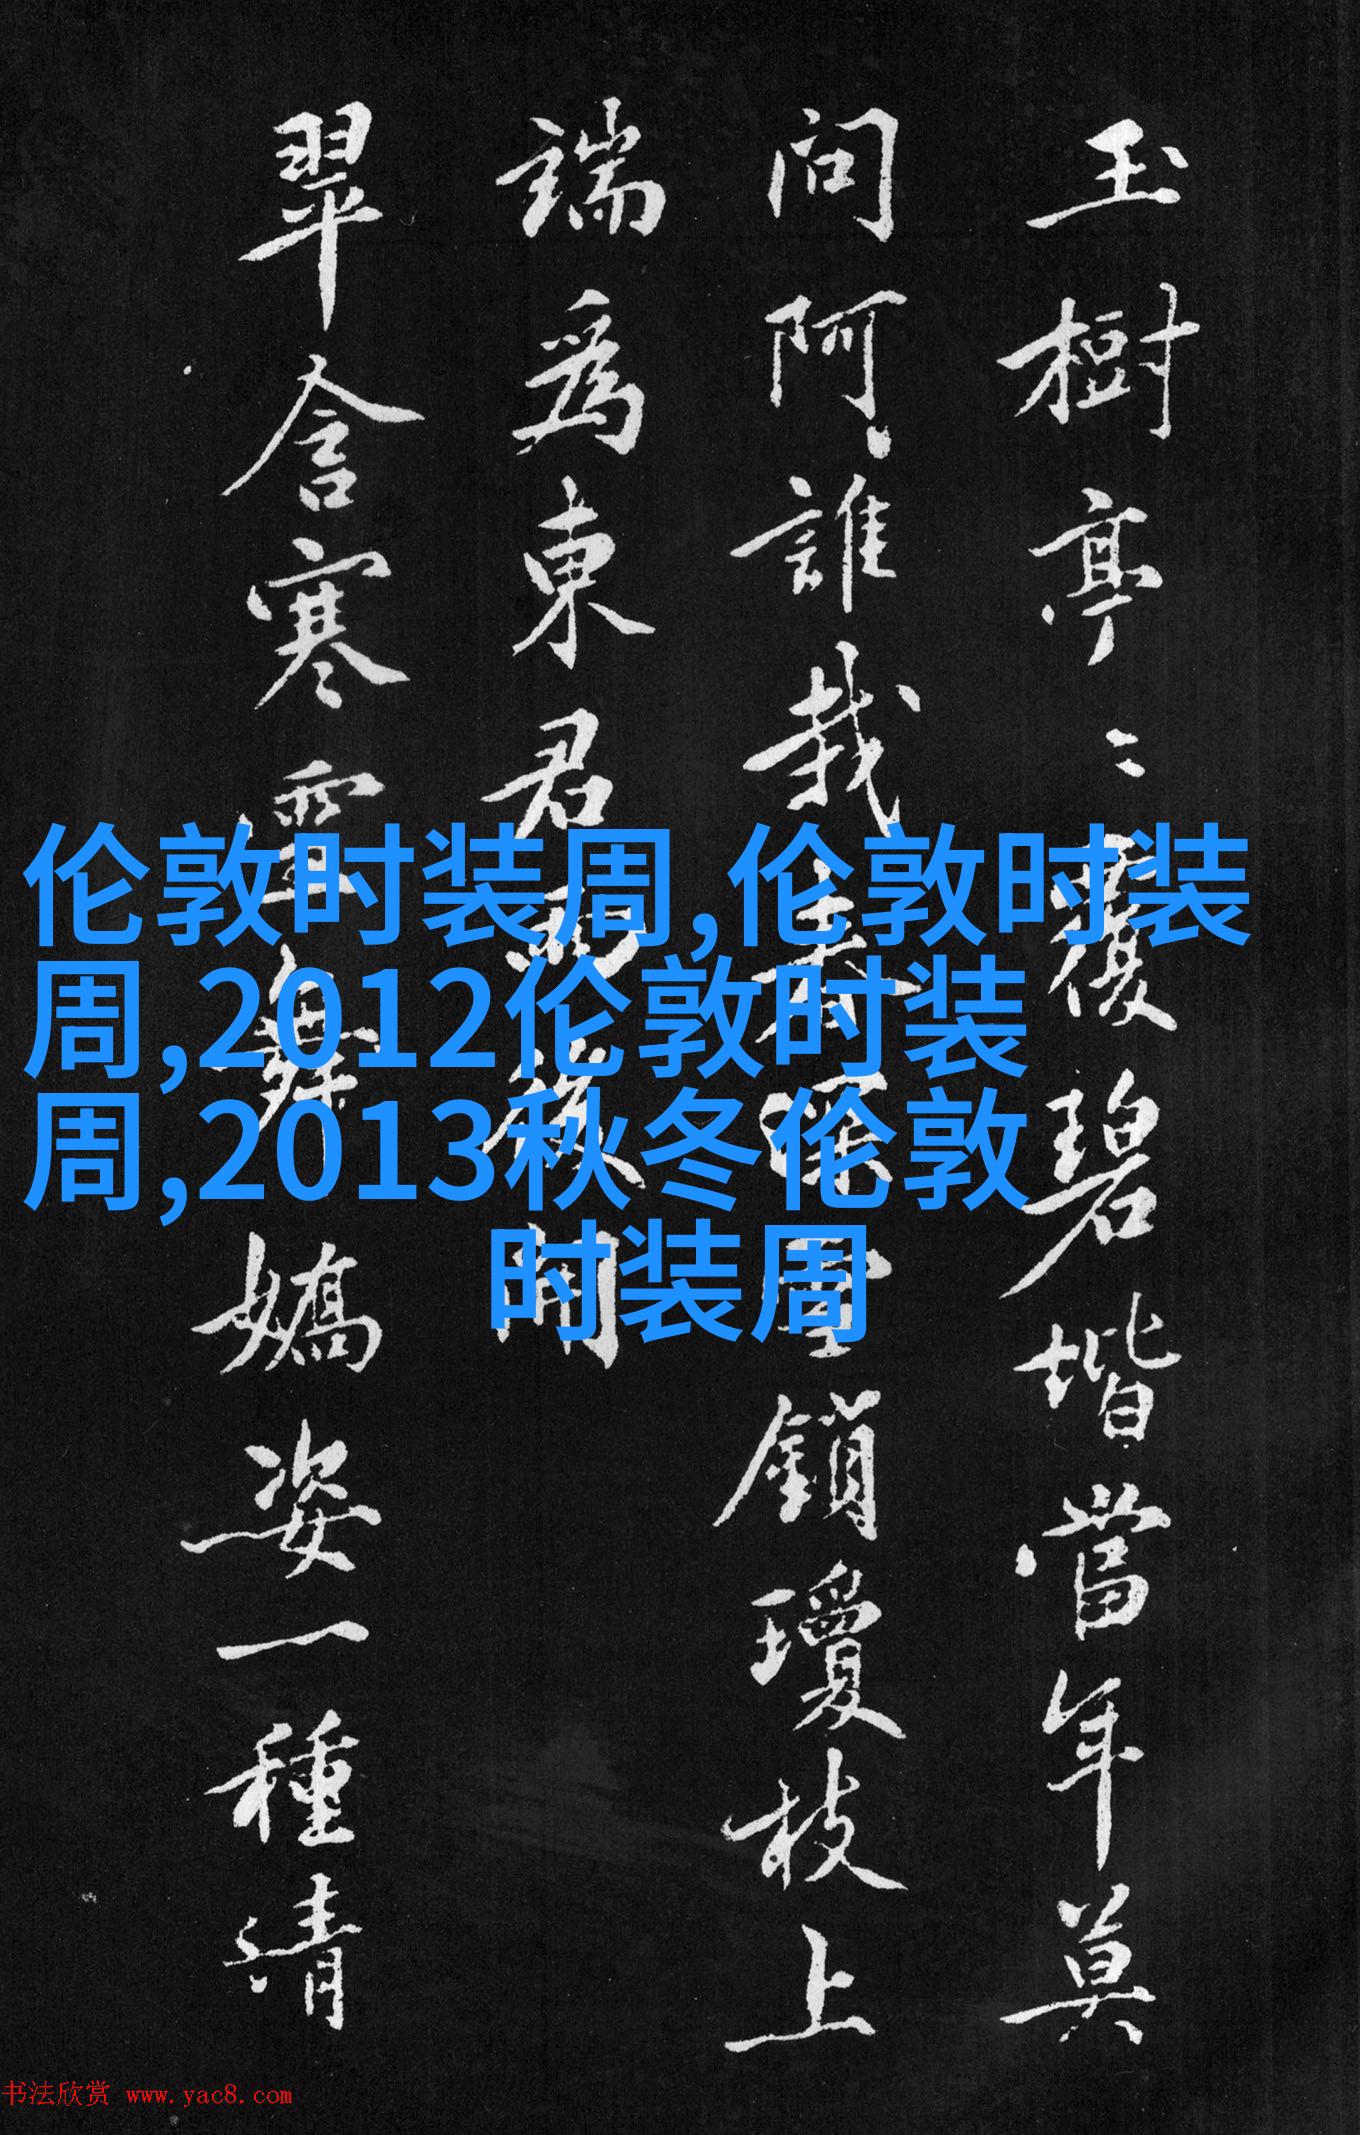 玉樹亭〻覆碧堦當年莫
問阿誰栽春深雪鎖瓊枝上
端爲東君雨後開
翠含寒舞嬌姿一種清
伦敦时装周,伦敦时装
周,2012伦敦时装
周,2013秋冬伦敦
时装周
书法欣赏 www.yac8.com